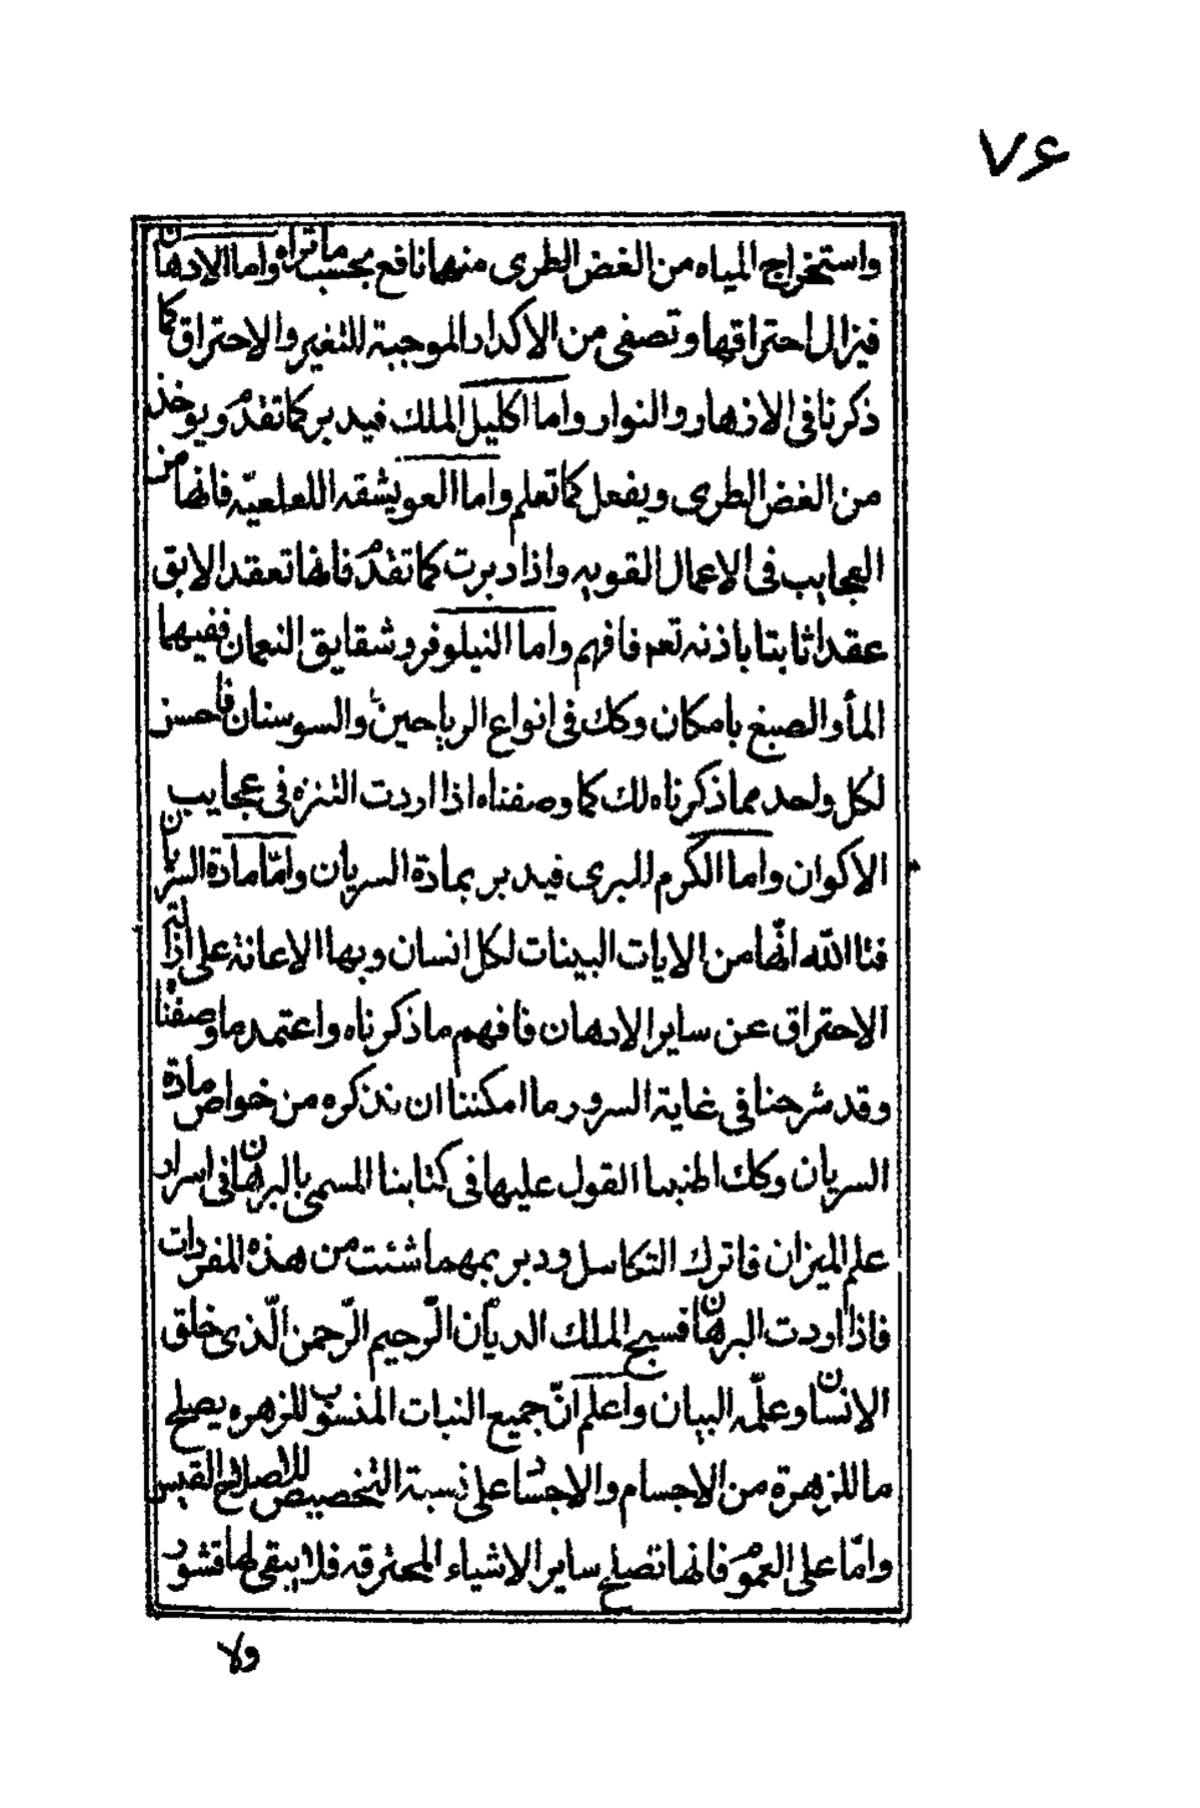 ٧۶
واستخراج المياه من الغض الطرى منهما نافع بحسب ما تراه واما الادهان
فيزال احتراقها وتصفى من الاكدار الموجبة للتغير والاحتراق كما
ذكرنا فى الازهار والنوار واما اكليل الملك فيدبر كما تقدم ويوخذ
من الغض الطرى ويفعل كما تعلم واما العويشقه اللعلعيّه فانها من
العجايب فى الاعمال القويه واذا دبرت كما تقدم فانها تعقد الابق
عقدا ثابتا باذنه تعم فافهم واما النيلوفر وشقايق النعمان ففيهما
المأ والصبغ بامكان وكك فى انواع الرياحين والسوسنان فاحسن
لكل واحد مما ذكرناه لك كما وصفناه اذا اردت التنزه فى عجايب
الاكوان واما الكرم البرى فيدبر بمادة السريان وامّا مادة السريان
فتا الله انّها من الايات البينات لكل انسان وبها الاعانة على اذالة
الاحتراق عن ساير الادهان فافهم ما ذكرناه واعتمد ما وصفنا
وقد شرحنا فى غاية السرور ما امكننا ان نذكره من خواص مادة
السريان وكك اطنبنا القول عليها فى كتابنا المسمى بالبرهان فى اسرار
علم الميزان فاترك التكاسل ودبر بمهما شئت من هذه المفردات
فاذا اردت البرهان فسبح الملك الديّان الرّحيم الرّحمن الّذى خلق
الانسان وعلّمه البيان واعلم انّ جميع النبات المنسوب للزهره يصلح
ما للزهرة من الاجسام والاجساد على نسبة التخصيص للاصلاح القبس
وامّا على العموم فانها تصلح ساير الاشياء المحترقه فلا يبقى لها قشور
ولا